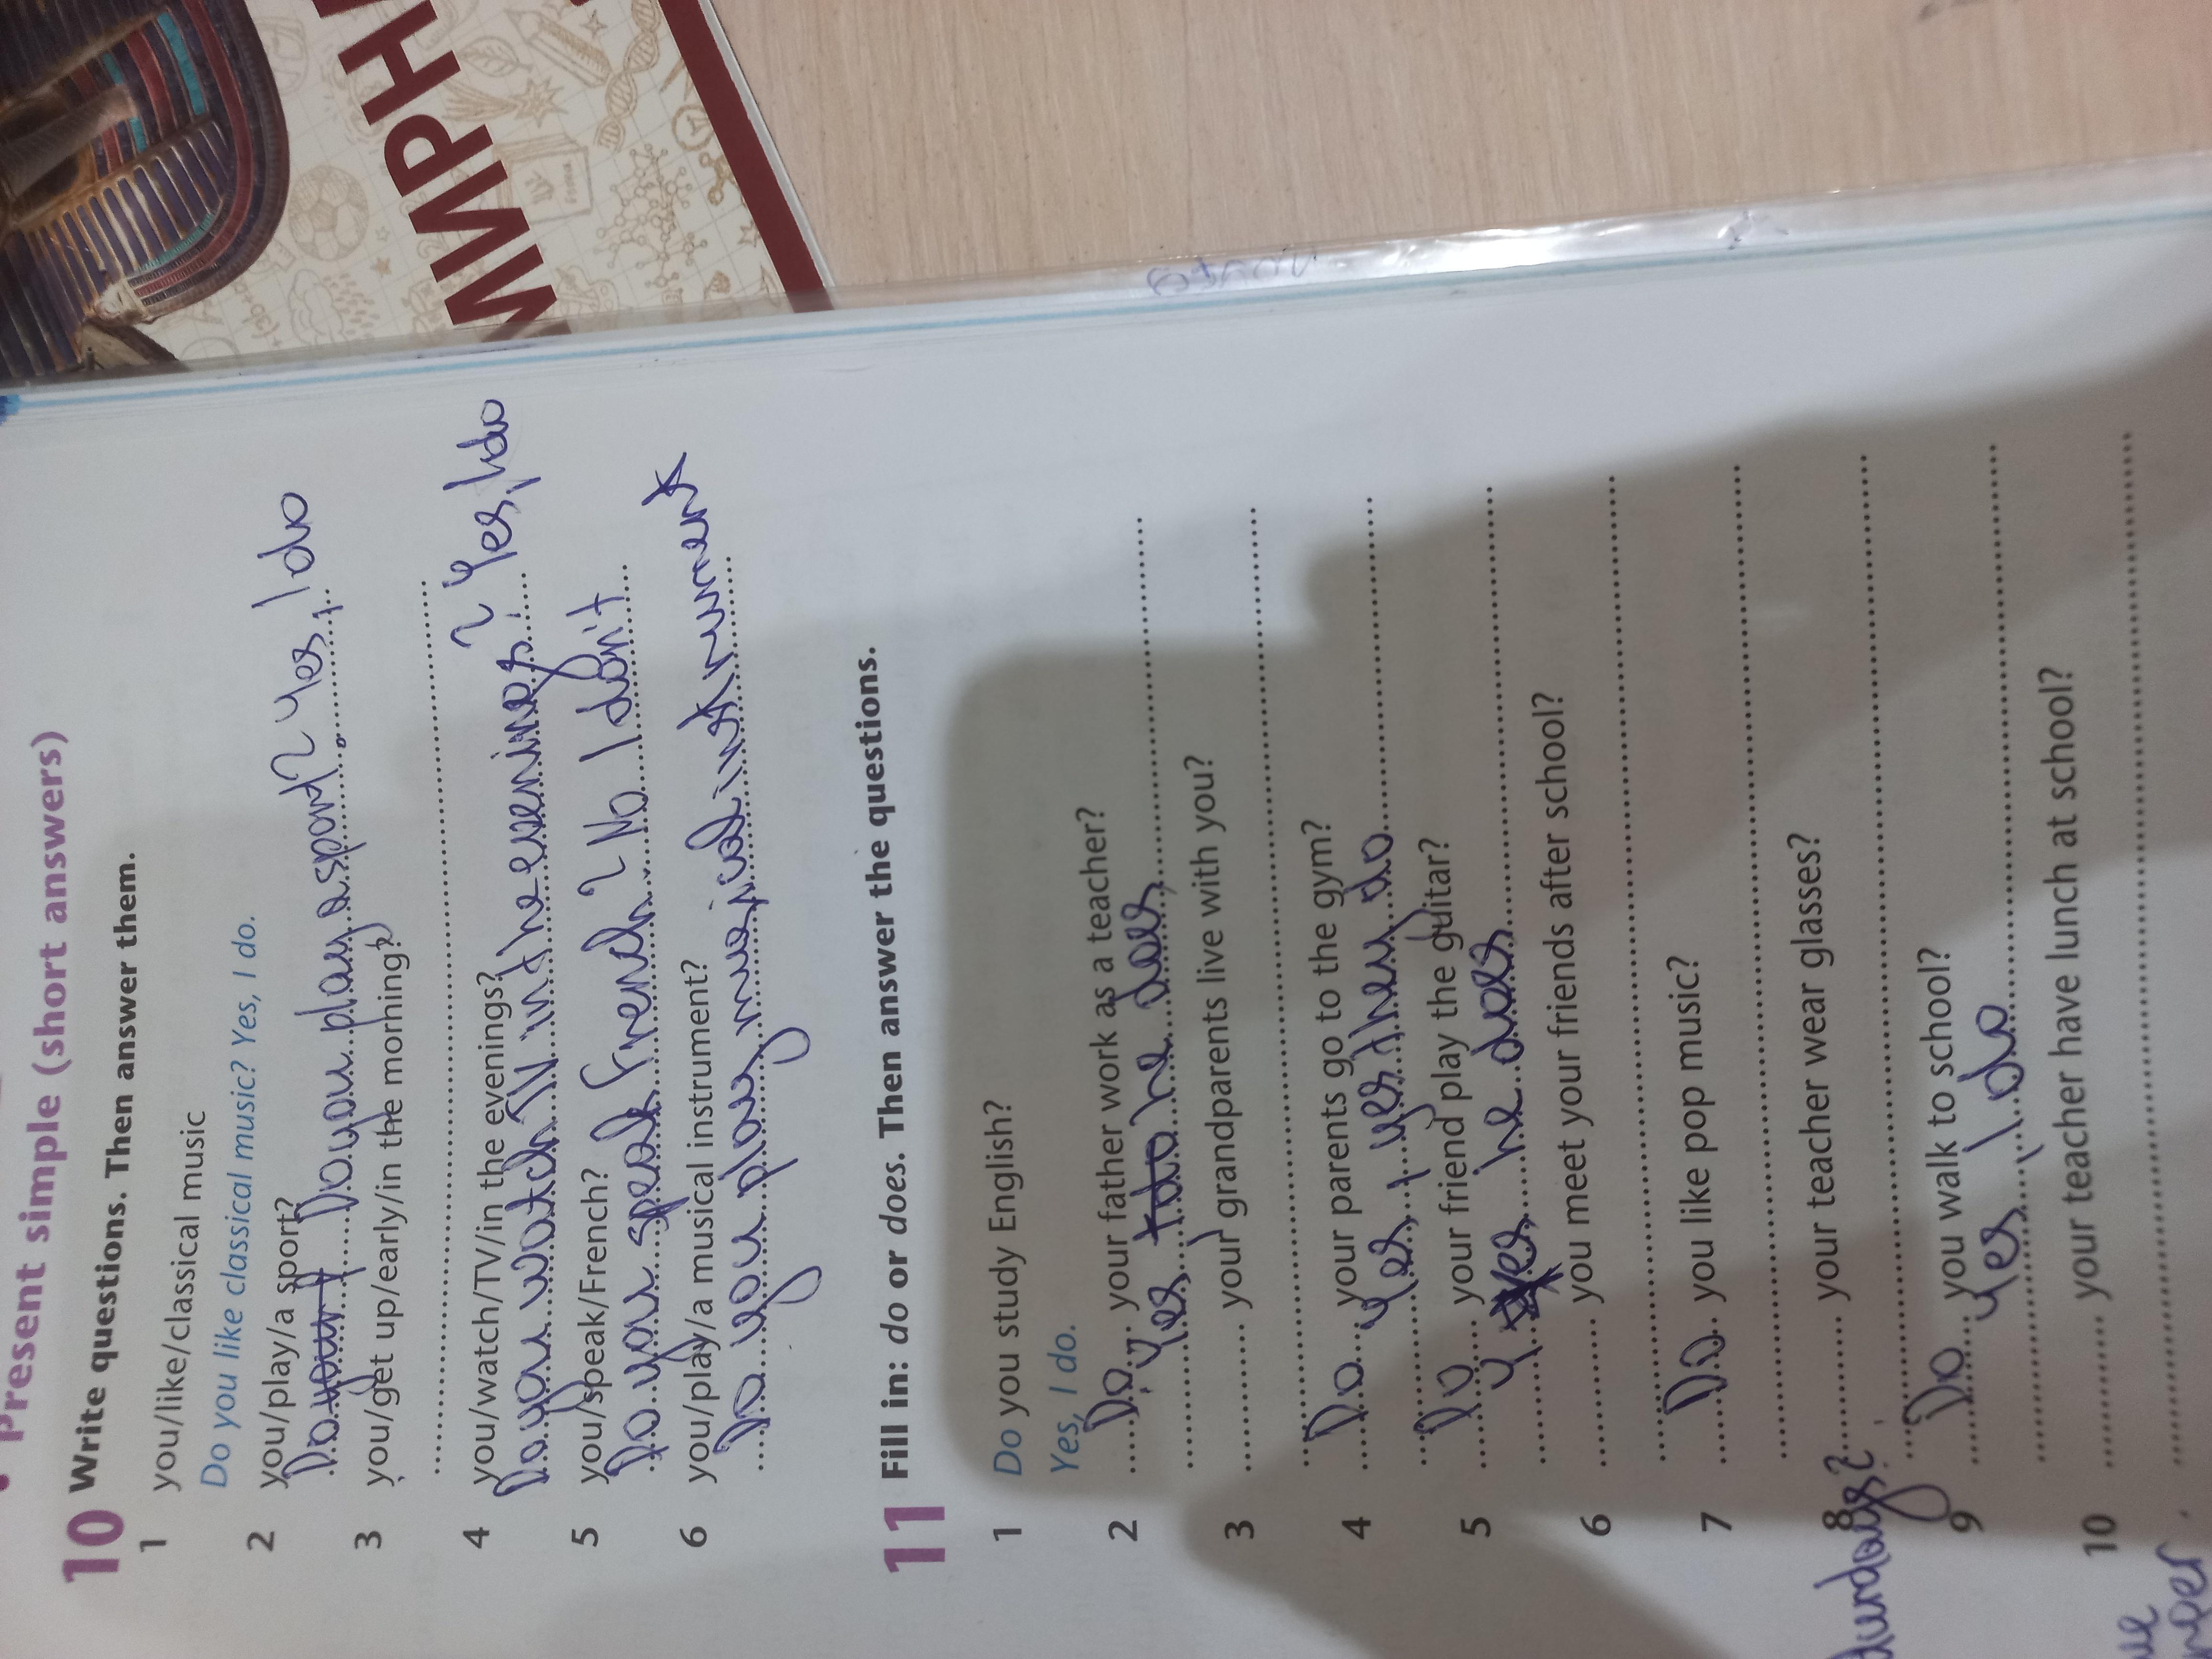 Present simple (short answers)
10 Write questions. Then answer them.
1 you/like/classical music
Do you like classical music? Yes, I do.
2 you/play/a sport?
Do you play a sport? Yes, I do
3 you/get up/early/in the morning?
4 you/watch/TV/in the evenings?
Do you watch TV in the evenings? Yes, I do
5 you/speak/French?
Do you speak French? No I don't
6 you/play/a musical instrument?
Do you play musical instrument
11 Fill in: do or does. Then answer the questions.
1 Do you study English?
Yes, I do.
2 Do your father work as a teacher?
Yes he does
3 your grandparents live with you?
4 Do your parents go to the gym?
Yes, yes they do
5 Do your friend play the guitar?
Yes he does
6 you meet your friends after school?
7 Do you like pop music?
8 your teacher wear glasses?
9 Do you walk to school?
Yes, I do
10 your teacher have lunch at school?